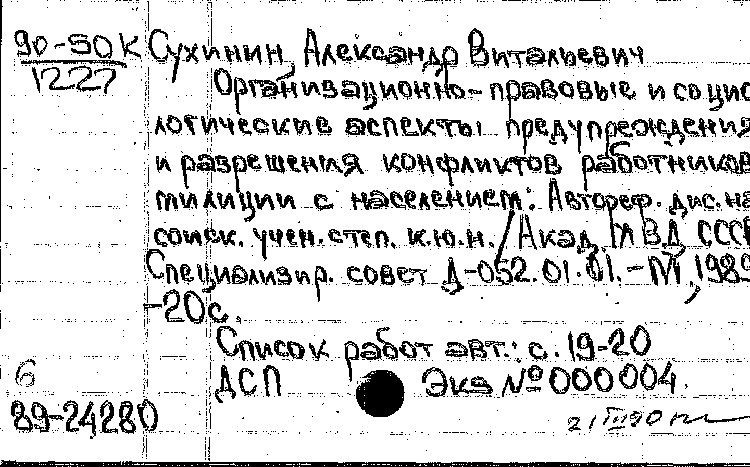 90-50К Сухинин, Александр Витальевич
1227
Организационно-правовые и социо
логические аспекты предупреждения
и разрешения конфликтов работников
милиции с населением: Автореф. дис. на
соиск. учен. степ. к.ю.н. / Акад. МВД СССР
Специализир. совет Д-052.01.01. - М., 1989
-20с.
Список работ авт.: с. 19-20
6
ДСП Экз № 000004
89-24280